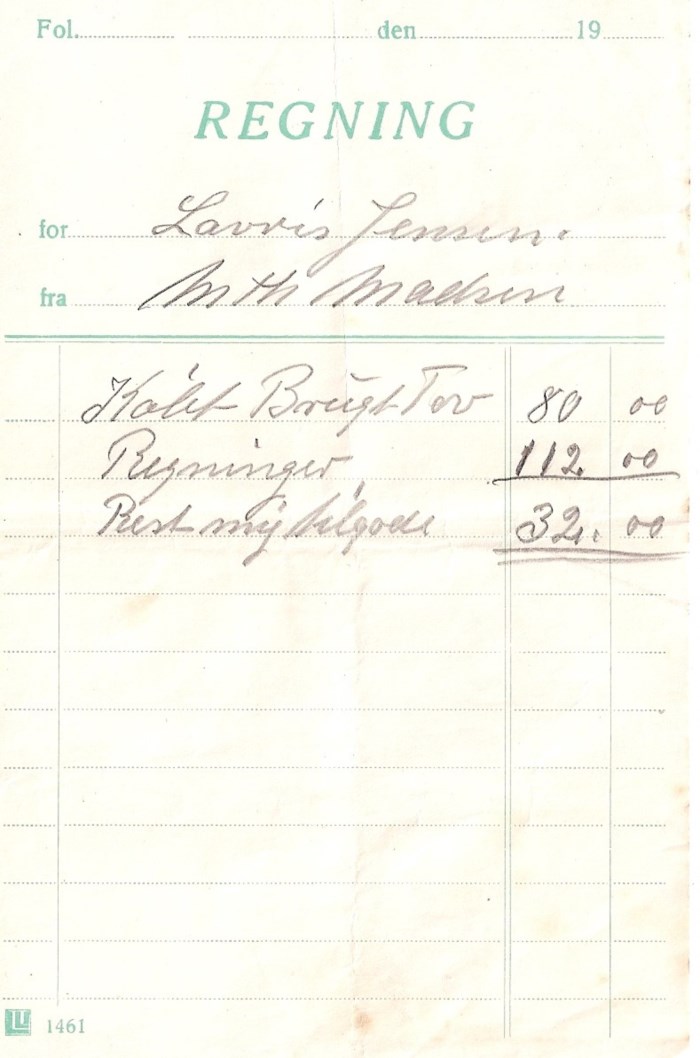 Fol. den 19
REGNING
for Lavris Jensen.
fra Mth Madsen
Købt Brugt Tov 80 00
Regninger 112 00
Rest mij tilgode 32. 00
LU 1461